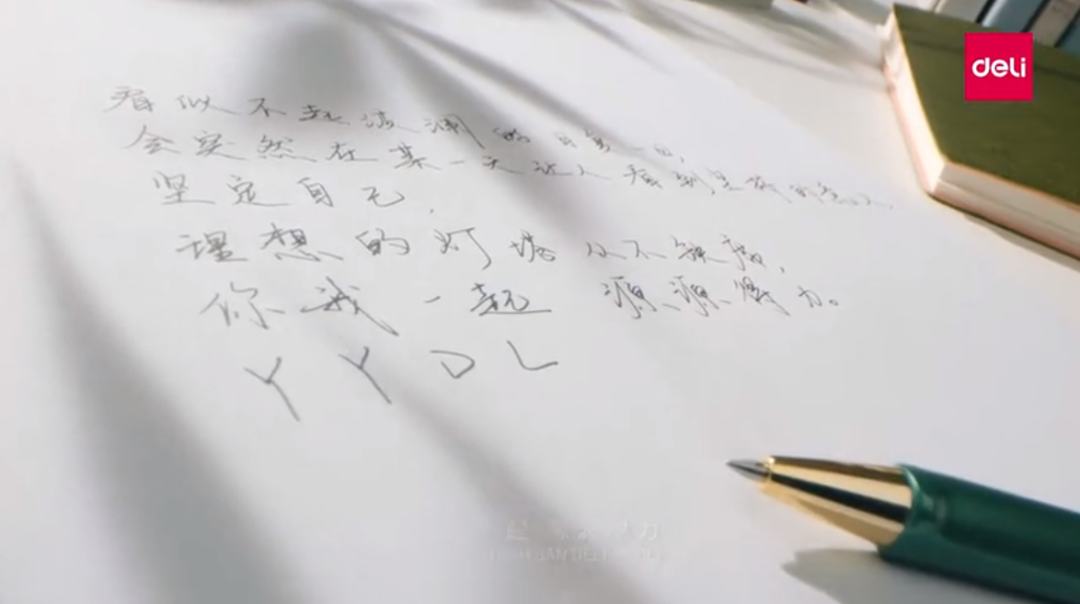 deli
看似不起波澜的日复一日,
会突然在某一天让人看到坚持的意义,
坚定自己,
理想的灯塔从不缺席,
你我一起 源源得力。
YYDL